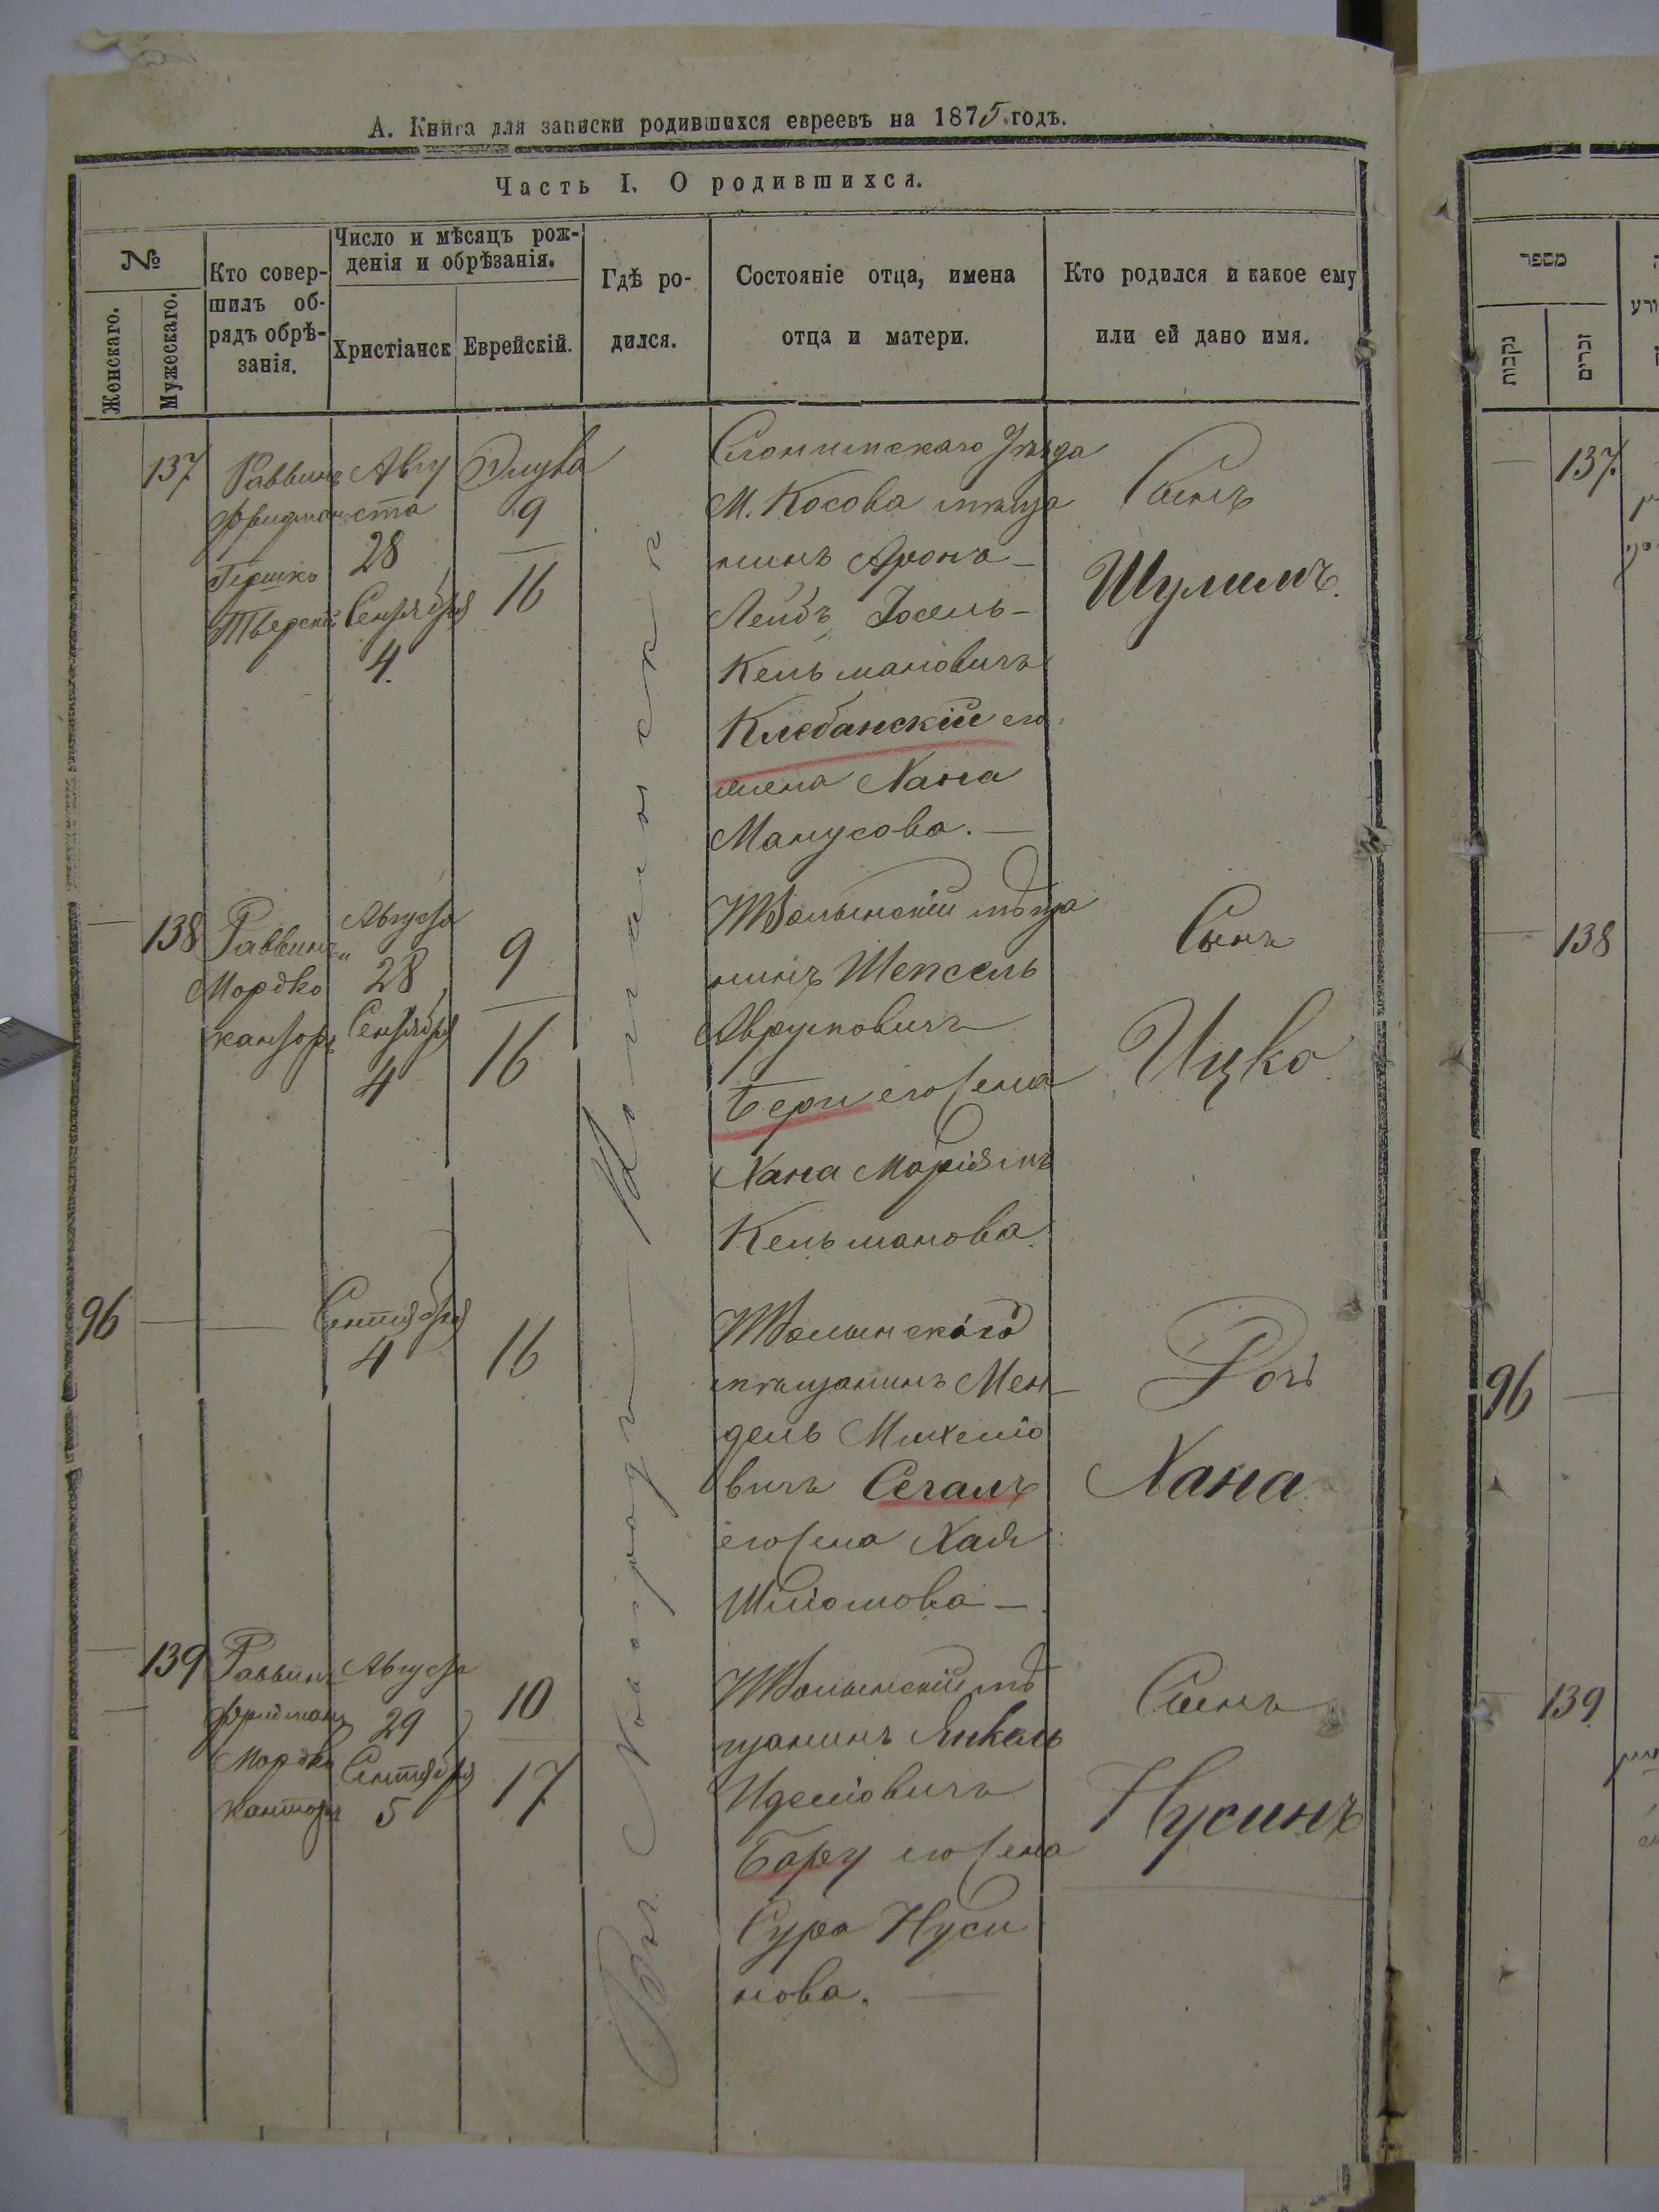 А. Книга для записки родившихся евреевъ на 1875 годъ.
Часть I. О родившихся.
№
Женскаго.
Мужескаго.
Кто совер-
шилъ об-
рядъ обрѣ-
занія.
Число и мѣсяцъ рож-
денія и обрѣзанія.
Христіанск
Еврейскій.
Гдѣ ро-
дился.
Состояніе отца, имена
отца и матери.
Кто родился и какое ему
или ей дано имя.
137
Раввинъ
Фридман
Гершко
Тверскій
Авгу
ста
28
Сентября
4.
Элула
9
16
Слонимскаго Уѣзда
М. Косова мѣща
нинъ Аронъ-
Лейбъ Іосель-
Кельмановичъ
Клебанскій его
жена Хана
Манусова.
Сынъ
Шулимъ.
138
Раввинъ
Мордко
канторъ
Августа
28
Сентября
4
9
16
Ж Волынскій мѣща
нинъ Шепсель
Аврумовичъ
Бери его жена
Хана Маріямъ
Кельманова
Сынъ
Ицко
96
Сентября
4
16
Ж Волынского
мѣщанинъ Мен-
дель Михелiо
вичъ Сегалъ
его жена Хая
Шліомова
Дочь
Хана
139
Раввинъ
Фридманъ
Мордко
канторъ
Августа
29
Сентября
5
10
17
Ж Волынскій мѣ
щанинъ Янкель
Иделіовичъ
Бару его жена
Сура Нуси
нова.
Сынъ
Нусинъ
Въ Новоградѣ-Волынскѣ
מספר
נקבות
זכרים
137
138
96
139